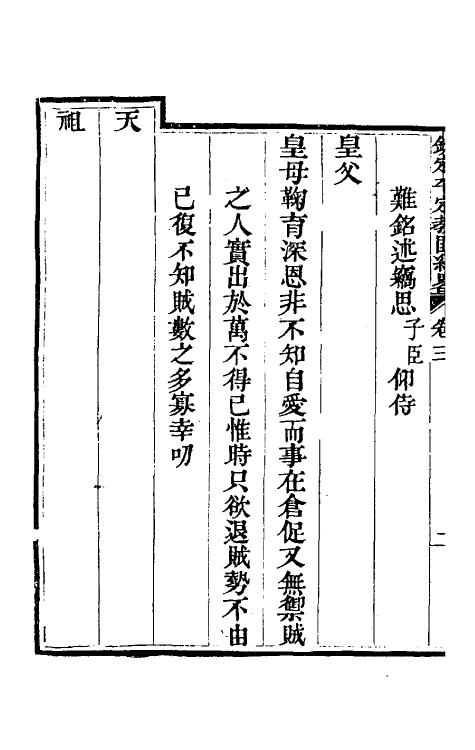 欽定平定教匪紀畧 卷三 二
難銘述竊思子臣仰侍
皇父
皇母鞠育深恩非不知自愛而事在倉促又無禦賊
之人實出於萬不得已惟時只欲退賊勢不由
已復不知賊數之多寡幸叨
天
祖